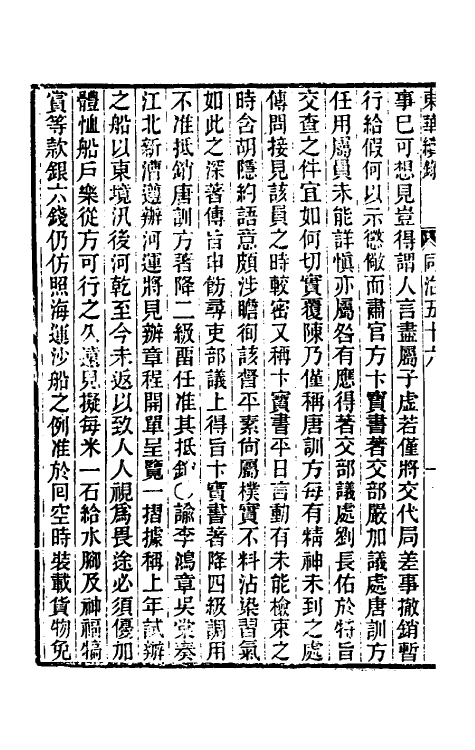 東華續錄　同治五十六
事已可想見豈得謂人言盡屬子虛若僅將交代局差事撤銷暫
行給假何以示懲儆而肅官方卞寶書著交部嚴加議處唐訓方
任用屬員未能詳愼亦屬咎有應得著交部議處劉長佑於特旨
交查之件宜如何切實覆陳乃僅稱唐訓方每有精神未到之處
傳問接見該員之時較密又稱卞寶書平日言動有未能檢束之
時含胡隱約語意頗涉瞻徇該督平素尙屬樸實不料沾染習氣
如此之深著傳旨申飭尋吏部議上得旨卞寶書著降四級調用
不准抵銷唐訓方著降二級留任准其抵銷○諭李鴻章吳棠奏
江北新漕遵辦河運將見辦章程開單呈覽一摺據稱上年試辦
之船以東境汛後河乾至今未返以致人人視爲畏途必須優加
體恤船戶樂從方可行之久遠見擬每米一石給水腳及神福犒
賞等款銀六錢仍仿照海運沙船之例准於回空時裝載貨物免